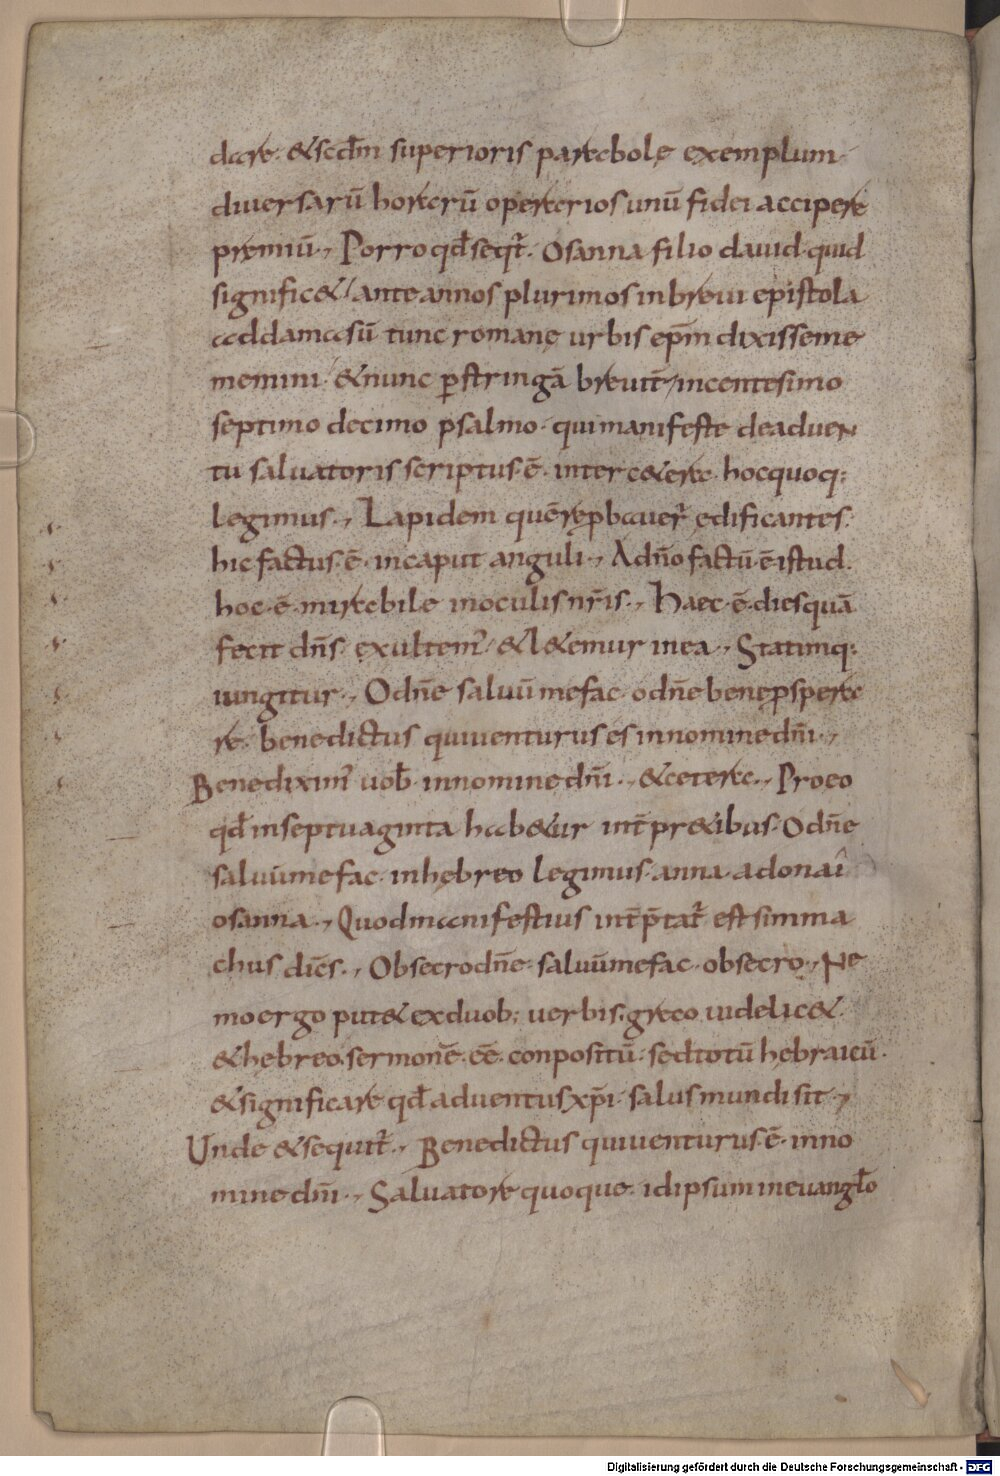 dare· &scdm̄ superioris parabolę exemplum
diuersarū horarū operarios unū fidei accipere
premiū·, Porro qđseqt̄· Osanna filio dauid quid
signific&/ ante annos plurimos inbreui epistola
addamasū tunc romanę urbis ep̄m dixisseme
memini· &nunc ꝑstringā breuit̄/ incentesimo
septimo decimo psalmo· quimanifeste deaduen
tu saluatoris scriptus·ē· interc&era· hocquoq;
legimus·, Lapidem quēreꝓbauer̄ ędificantes·
hic factus·ē· incaput anguli·, Adn̄o factū·ē·istud·
hoc·ē·mirabile inoculisnr̄is·, Haec·ē·diesquā
fecit dn̄s· exultem᾽/ &l&emur inea·, Statimq;
iungitur·, Odn̄e saluū mefac· odn̄e beneꝓspera
re· benedictus quiuenturus es innominedn̄i·,
Benedixim᾽ uob̄· innomine dn̄i·, &cetera·, Proeo
qđ inseptuaginta hab&ur int̄pr&ibus· Odn̄e
saluūmefac· inhębreo legimus· anna· adonai
osanna·, Quodmanifestius int̄p̄tat̄ est simma
chus dicēs·, Obsecrodn̄e· saluūmefac· obsecro·, Ne
moergo put& exduob; uerbis· gręco uidelic&·
&hębreo· sermonē· cē· conpositū· sedtotū hebraicū·
&significare qđ aduentus xp̄i· salus mundi sit·,
Unde &sequit̄·, Benedictus quiuenturus·ē· inno
mine dn̄i·, Saluatore quoque· idipsum ineuangło
Digitalisierung gefördert durch die Deutsche Forschungsgemeinschaft - DFG